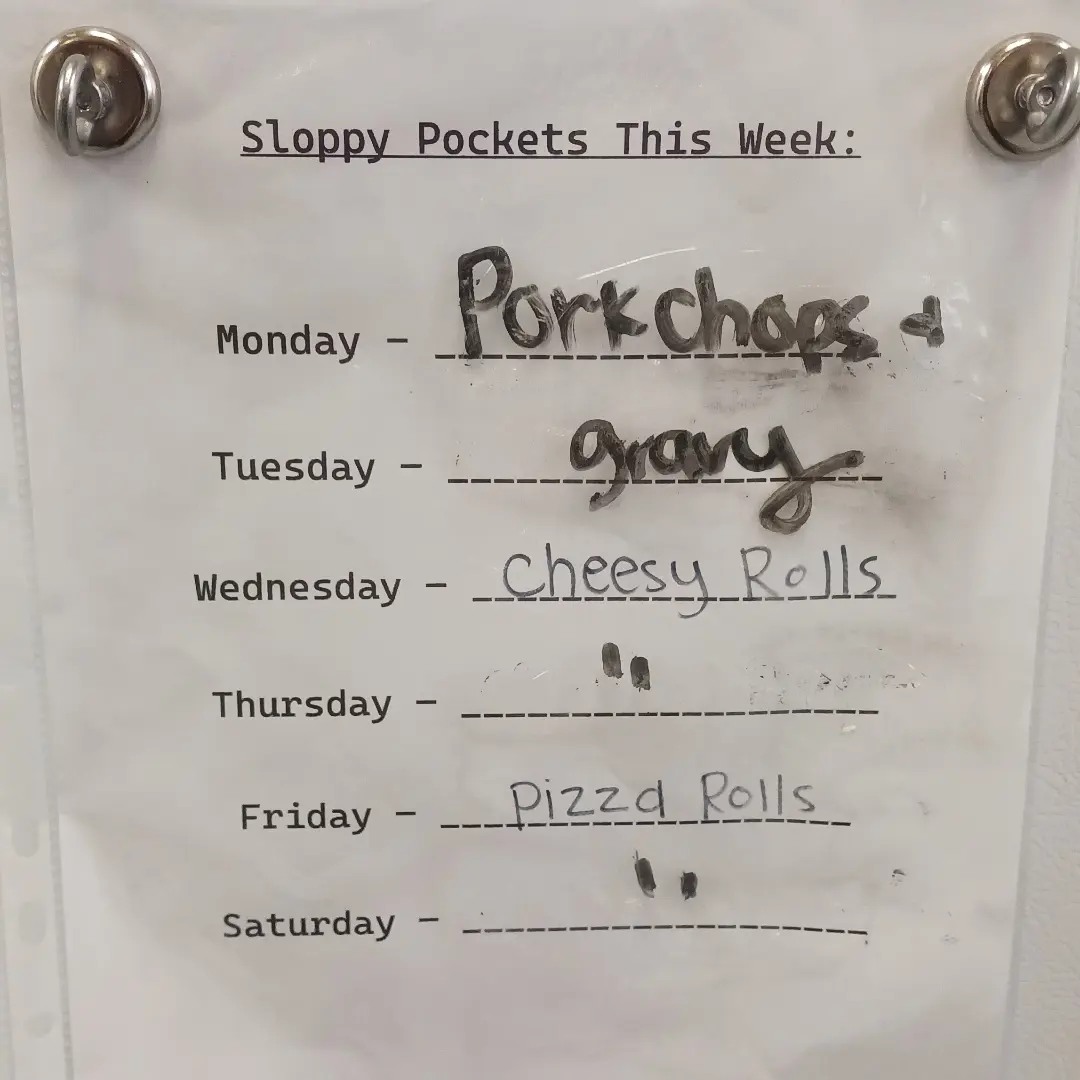 Sloppy Pockets This Week:
Monday - Pork chops &
Tuesday - gravy
Wednesday - cheesy Rolls
Thursday - "
Friday - pizza Rolls
Saturday - "